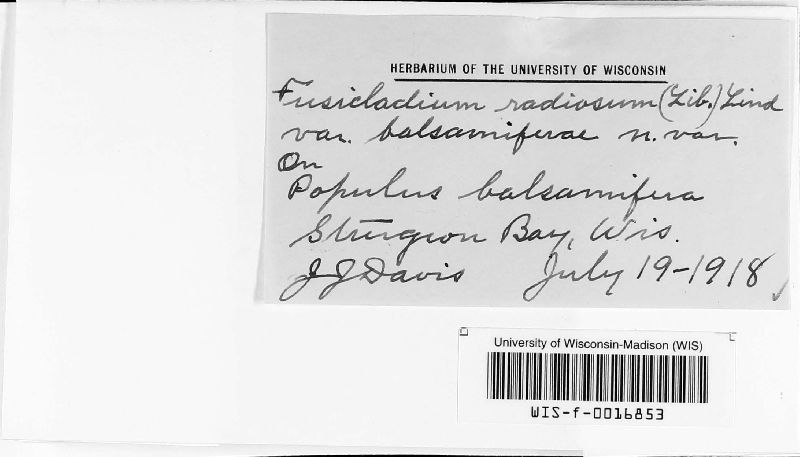 HERBARIUM OF THE UNIVERSITY OF WISCONSIN
Fusicladium radiosum (Lib.) Lind
var. balsamiferae n. var.
On
Populus balsamifera
Sturgeon Bay, Wis.
J J Davis July 19-1918
University of Wisconsin-Madison (WIS)
WIS-f-0016853